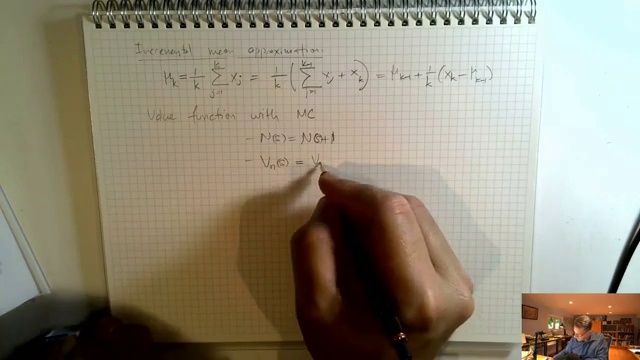 Incremental mean approximation:
μ_k = 1/k ∑_{j=1}^{k} x_j = 1/k ( ∑_{j=1}^{k-1} x_j + x_k ) = μ_{k-1} + 1/k (x_k - μ_{k-1})
Value function with MC
- N(s) = N(s)+1
- V_n(s) = V